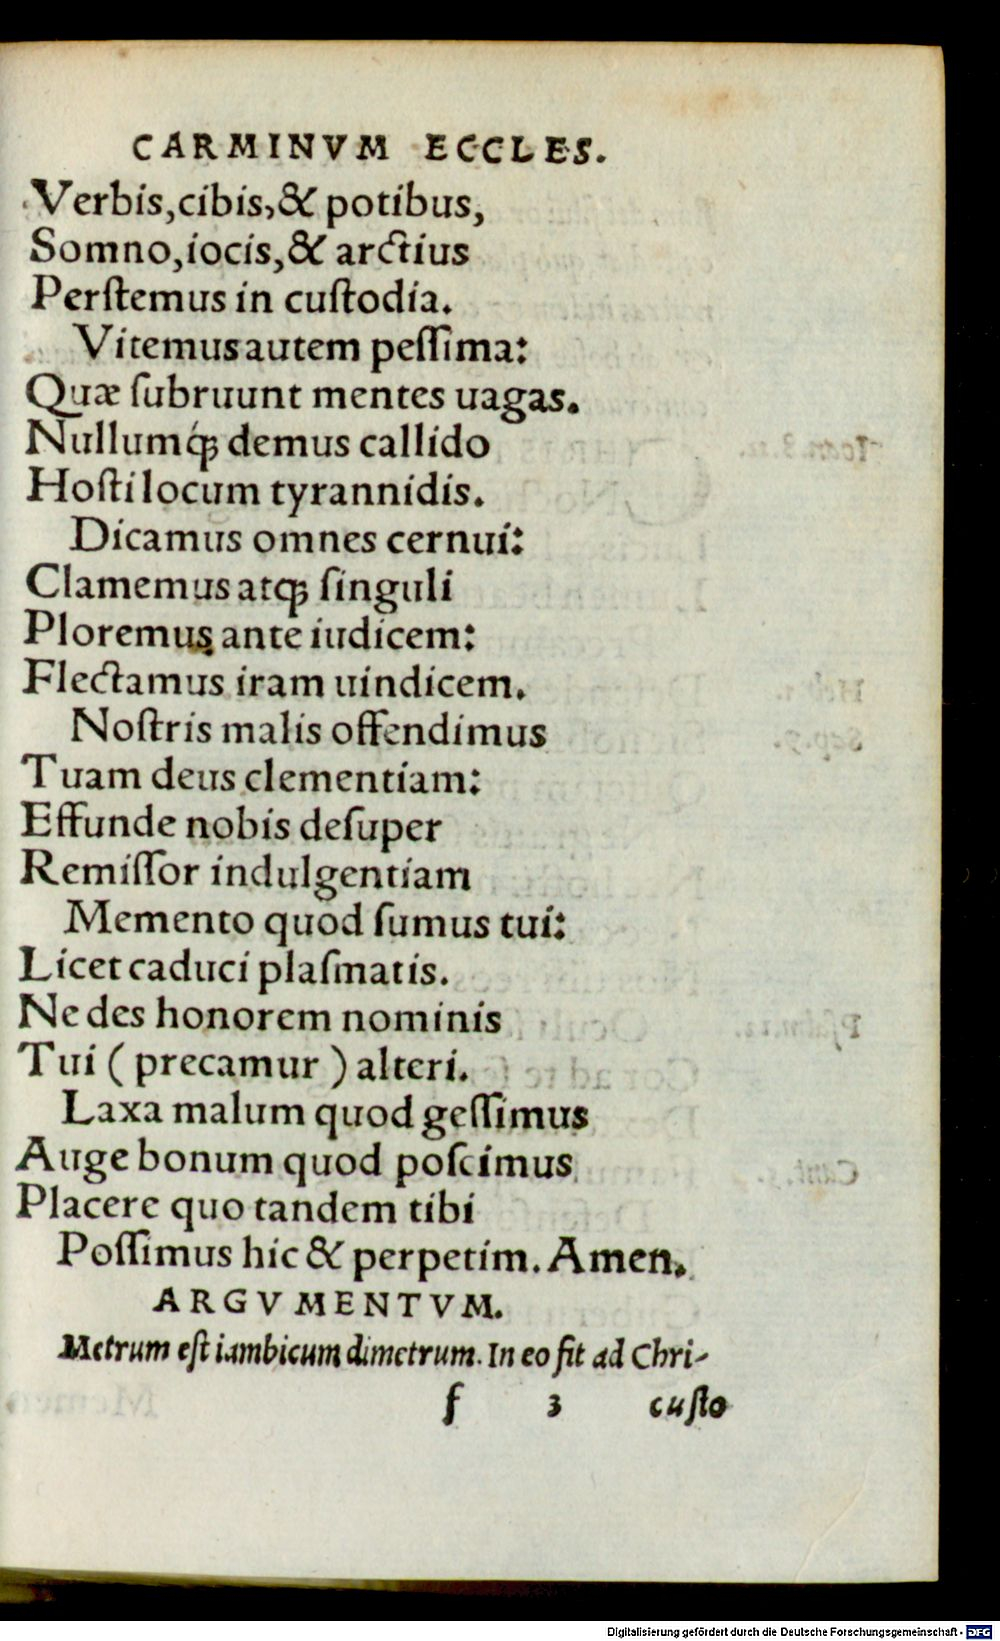 CARMINVM ECCLES.
Verbis,cibis,& potibus,
Somno,iocis,& arctius
Perſtemus in cuſtodia.
Vitemus autem peſſima:
Quæ ſubruunt mentes uagas.
Nullumq́ꝫ demus callido
Hoſti locum tyrannidis.
Dicamus omnes cernui:
Clamemus atqꝫ ſinguli
Ploremus ante iudicem:
Flectamus iram uindicem.
Noſtris malis offendimus
Tuam deus clementiam:
Effunde nobis deſuper
Remiſſor indulgentiam
Memento quod ſumus tui:
Licet caduci plaſmatis.
Ne des honorem nominis
Tui ( precamur ) alteri.
Laxa malum quod geſſimus
Auge bonum quod poſcimus
Placere quo tandem tibi
Poſſimus hic & perpetim. Amen.
ARGVMENTVM.
Metrum eſt iambicum dimetrum. In eo fit ad Chri-
f 3 cuſto
Digitalisierung gefördert durch die Deutsche Forschungsgemeinschaft - DFG